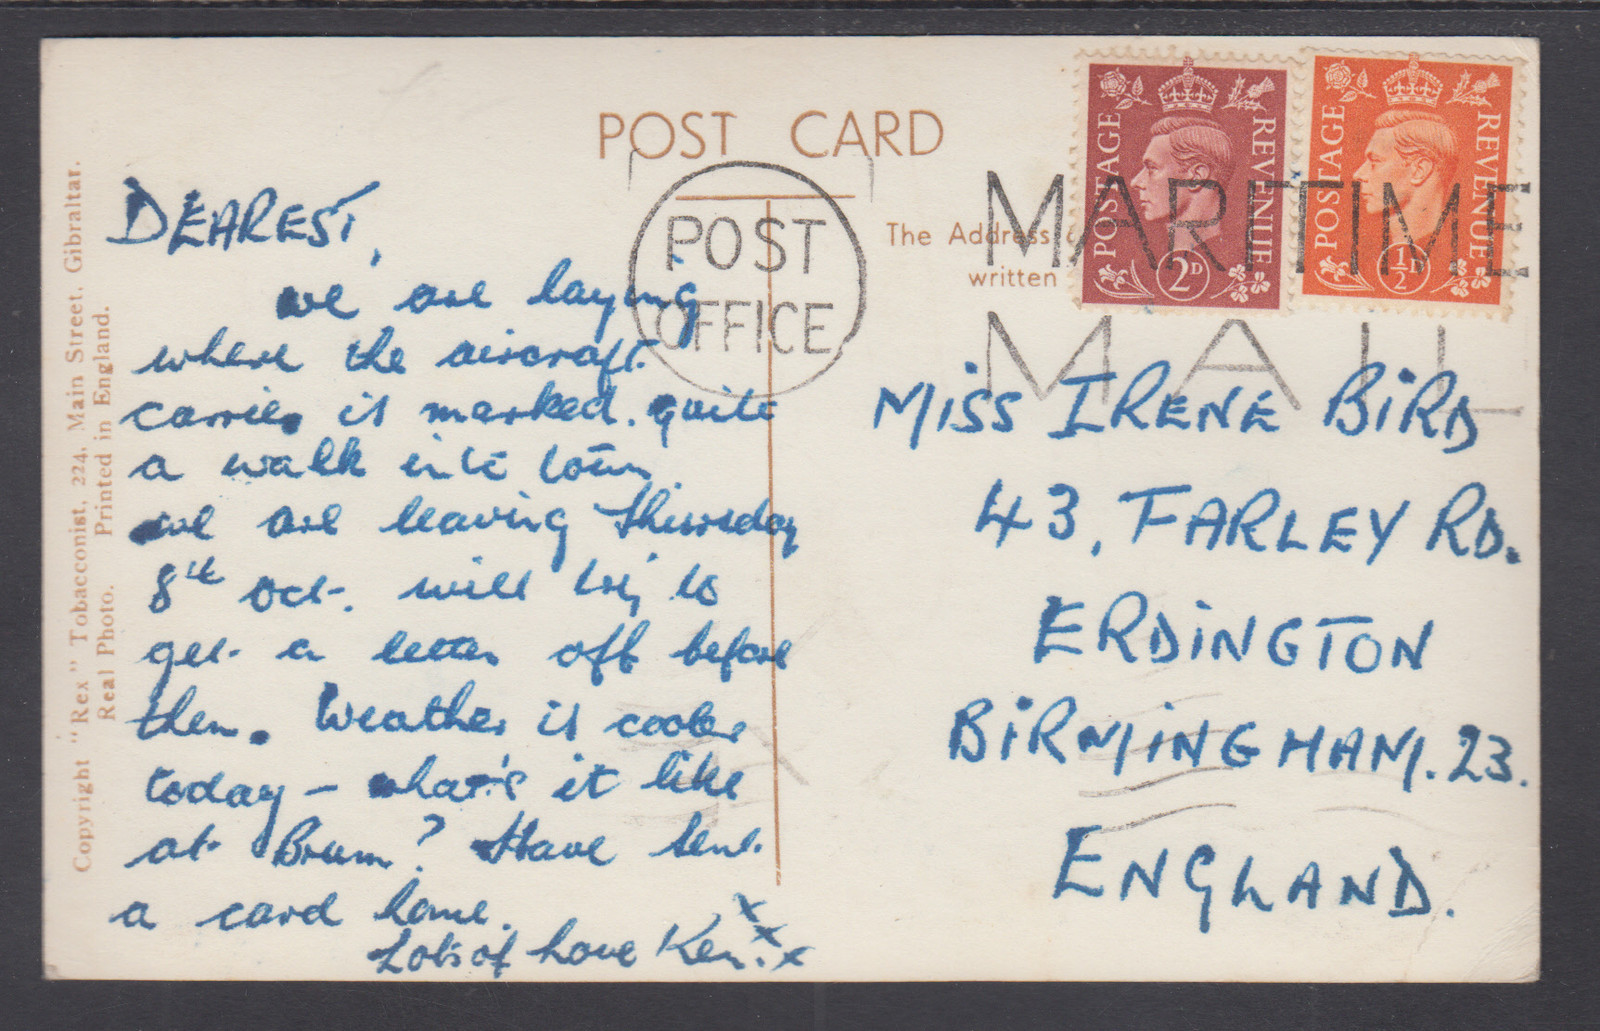 POST CARD
POSTAGE REVENUE 2D
POSTAGE REVENUE ½D
POST OFFICE
MARITIME
MAIL
The Address
written
Copyright "Rex" Tobacconist, 224, Main Street, Gibraltar.
Real Photo. Printed in England.
DEAREST,
we are laying
where the aircraft
carrier is marked. quite
a walk into town
we are leaving Thursday
8th Oct. will try to
get a letter off before
then. Weather is cooler
today – what's it like
at Brum? Have sent
a card home.
Lots of love Ken. x x x
MISS IRENE BIRD
43, FARLEY RD.
ERDINGTON
BIRMINGHAM. 23.
ENGLAND.